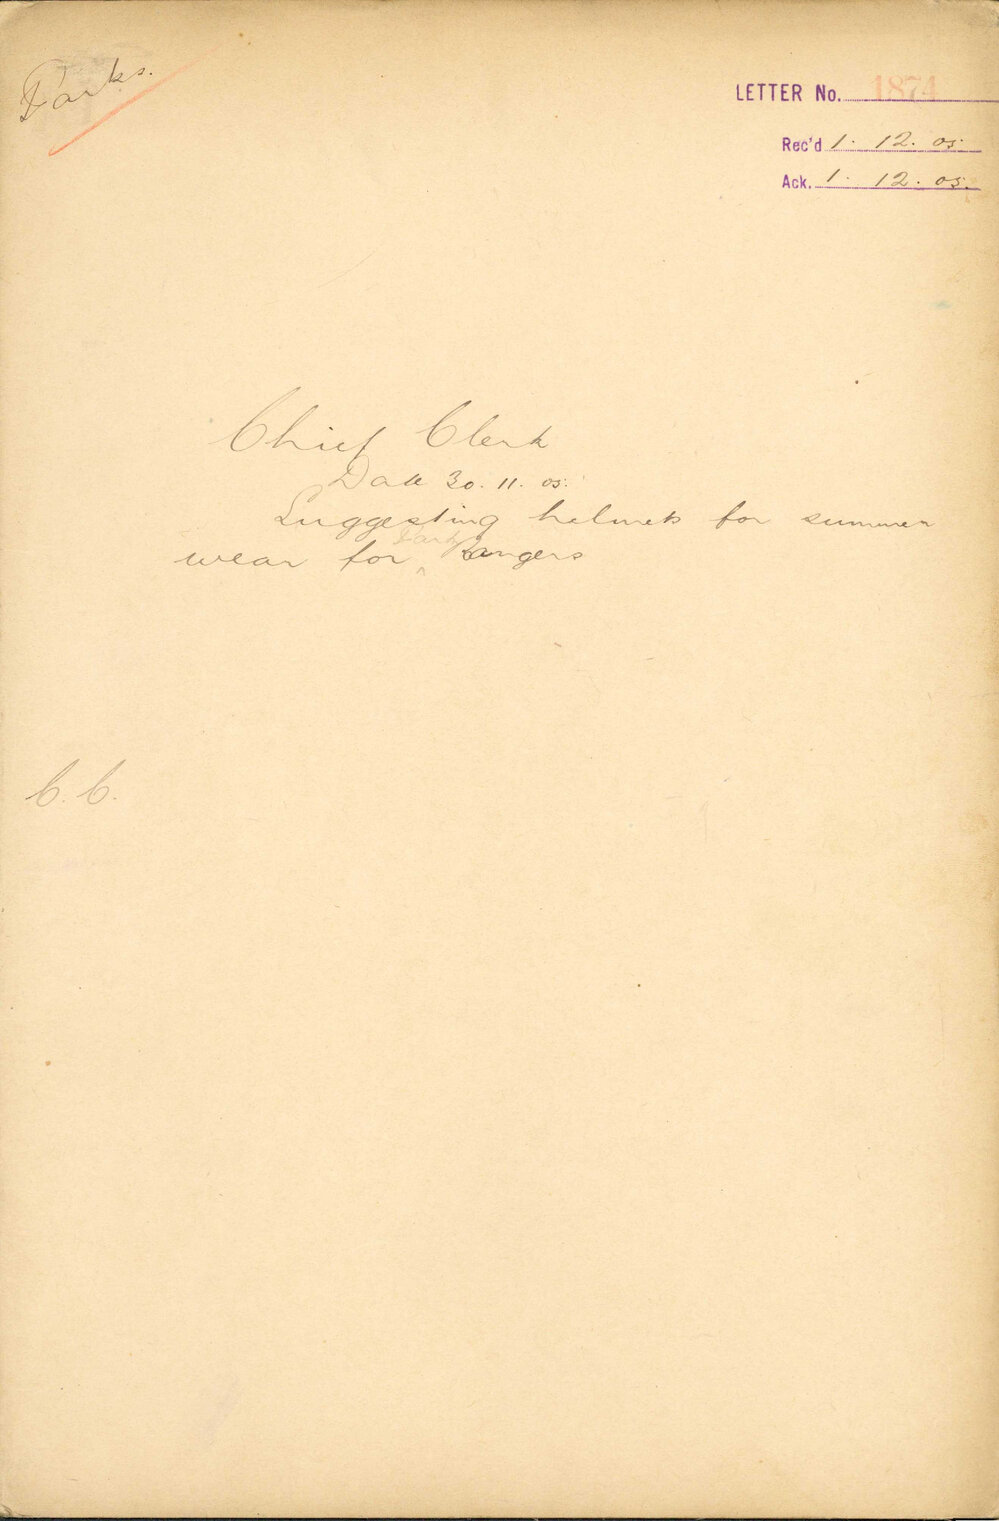 Parks.
LETTER No. 1874
Rec'd 1. 12. 05.
Ack. 1. 12. 05.
Chief Clerk
Date 30. 11. 05.
Suggesting helmets for summer
Park
wear for ^ Rangers
C. C.